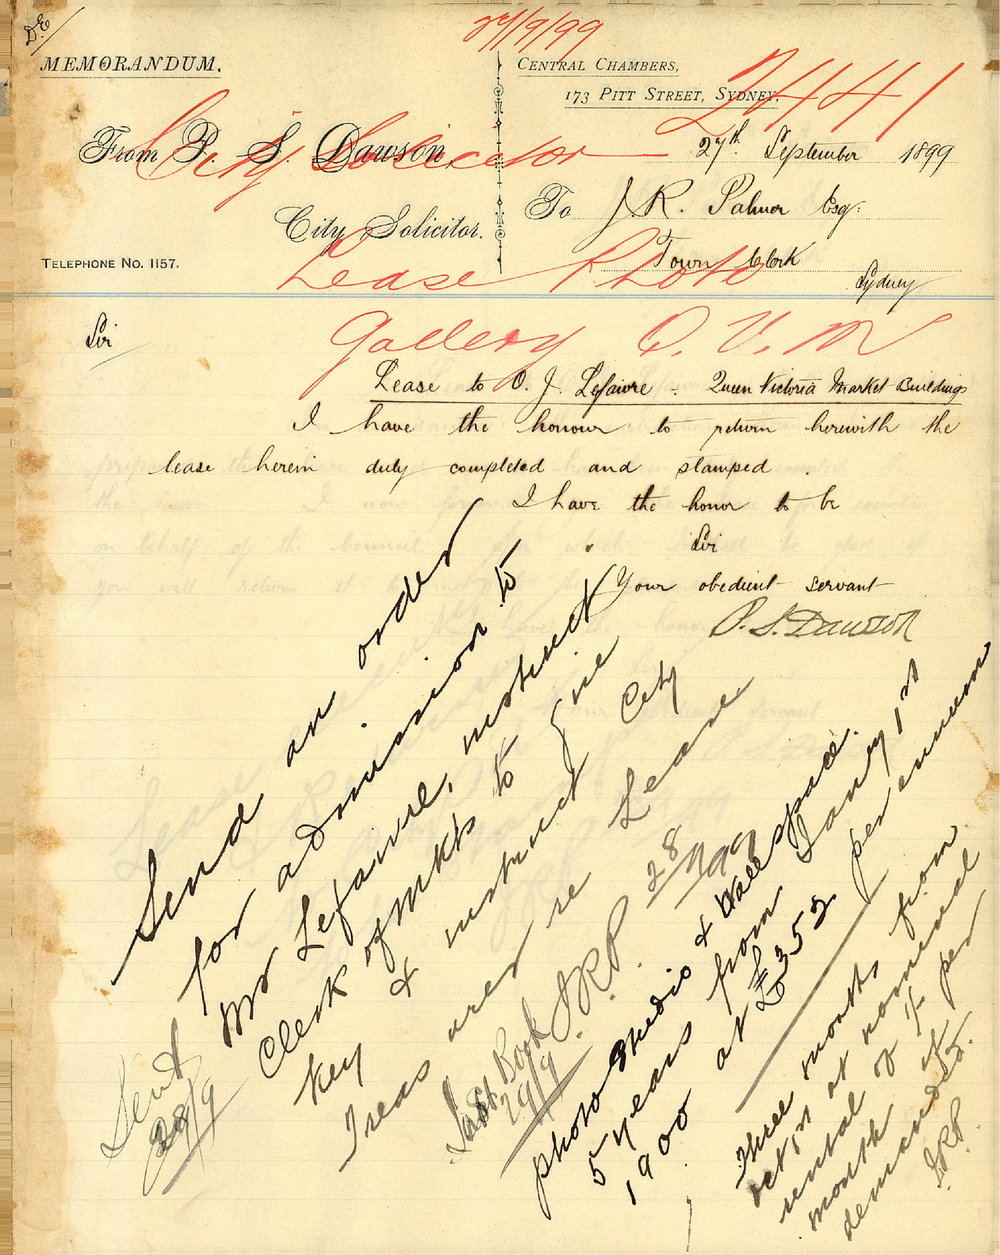 D.E
27/9/99
MEMORANDUM.
CENTRAL CHAMBERS,
173 PITT STREET, SYDNEY,
2441
From P. S. Dawson,
City Solicitor
27th September 1899
To J. R. Palmer Esq:
City Solicitor.
Town Clerk
TELEPHONE No. 1157.
Sydney
Lease Photo
Gallery Q. V. M
Sir
Lease to O. J. Lefaivre - Queen Victoria Market Buildings
I have the honour to return herewith the
lease herein duly completed and stamped.
I have the honor to be
Sir
Your obedient servant
P. S. Dawson
Send an order
for admission to
Mr Lefaivre, instruct
Clerk of Mkts to give
key & instruct City
Treas urer re Lease
JRP 28/9/99
Sent
28/9
29/9
photo studio & Wall space.
5 years from Jany 1st
1900 at £352 per annum
Three months from
Oct 1st at nominal
rental of 1/- per
month if
demanded.
JRP